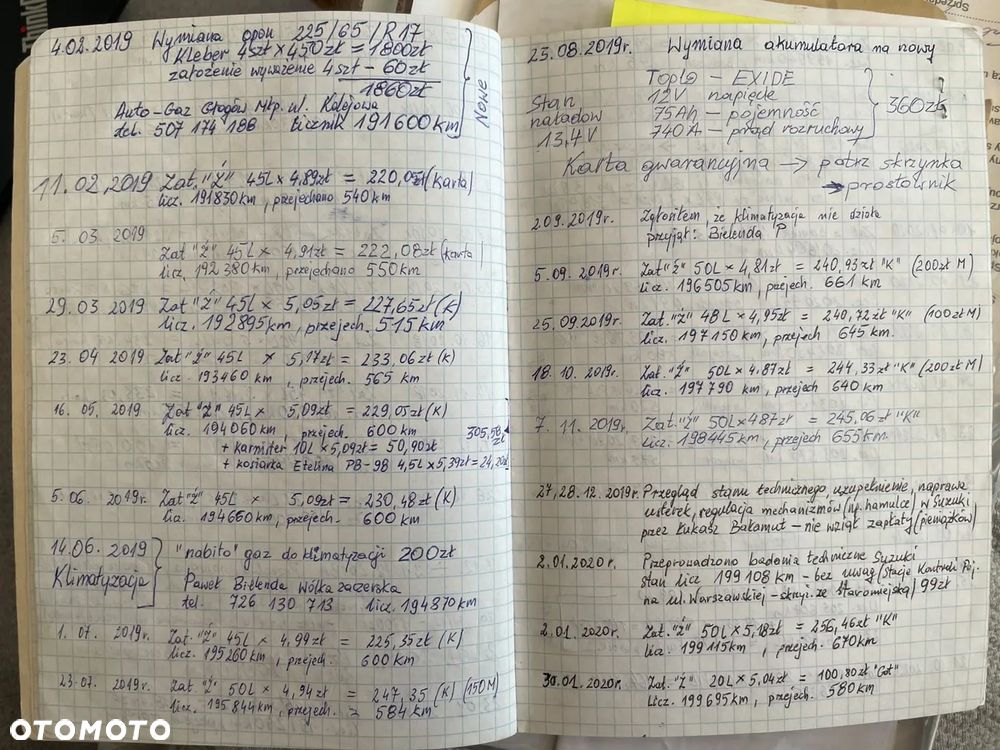 4.02.2019 Wymiana opon 225/65/R17
Kleber 4szt x 450zł = 1800zł
założenie wyważenie 4szt – 60zł
1860zł
Nowe
Auto-Gaz Głogów Młp. ul. Kolejowa
tel. 507 174 188 licznik 191600 km
11.02.2019 Zat. "Ź" 45L x 4,89zł = 220,05zł (karta)
licz. 191830 km, przejechano 540 km
5.03.2019
Zat "Ź" 45L x 4,91zł = 222,08zł (karta)
licz. 192380km, przejechano 550km
29.03 2019 Zat "Ź" 45L x 5,05zł = 227,65zł (K)
licz. 192895km, przejech. 515km
23.04 2019 Zat "Ź" 45L x 5,17zł = 233,06zł (K)
licz. 193460 km, przejech. 565 km
16.05.2019 Zat "Ź" 45L x 5,09zł = 229,05zł (K)
licz. 194060km, przejech. 600km
305,58 zł
+ karnister 10L x 5,09zł = 50,90zł
+ kosiarka Etelina PB-98 4,5L x 5,39zł = 24,20zł
5.06.2019r. Zat "Ź" 45L x 5,09zł = 230,48zł (K)
lia. 194660km, przejech. 600km
14.06.2019 "nabito" gaz do klimatyzacji 200zł
Klimatyzacja Paweł Bielenda Wólka
tel. 726 130 713 licz. 194870km
1.07.2019r. Zat. "Ź" 45L x 4,99zł = 225,35zł (K)
licz. 195260km, przejech. 600km
23.07.2019r. Zat "Ź" 50L x 4,94zł = 247,35 (K) (150M)
licz. 195844km, przejech. = 584km
OTOMOTO
23.08.2019r. Wymiana akumulatora na nowy
Topla – EXIDE
Stan 12V napięcie
naładow 75Ah – pojemność 360zł
13,4V 740A – prąd rozruchowy
Karta gwarancyjna → patrz skrzynka
→ prostownik
2.09.2019r. Zgłosiłem, że klimatyzacja nie działa
przyjął: Bielenda P
5.09.2019r. Zat "Ź" 50L x 4,81zł = 240,93zł "K" (200zł M)
licz. 196505km, przejech. 661km
25.09.2019r. Zat. "Ź" 48L x 4,95zł = 240,72zł "K" (100zł M)
licz. 197150km, przejech 645km.
18.10.2019r. Zat. "Ź" 50L x 4.87zł = 244,33zł "K" (200zł M)
licz. 197790 km, przejech 640 km
7.11.2019r. Zat. "Ź" 50L x 487zł = 245,06zł "K"
licz. 198445km, przejech 655km.
27,28.12.2019r. Przegląd stanu technicznego, uzupełnienie, naprawa
usterek, regulacja mechanizmów (np. hamulce) w Suzuki
przez Łukasz Bałamut – nie wziął zapłaty (pieniążków)
2.01.2020r. Przeprowadzono badania techniczne Suzuki
stan licz 199108 km – bez uwag (Stacje Kontroli Poj.
na ul. Warszawskiej – skrzyż. ze Staromiejską) 99zł
2.01.2020r. Zat. "Ź" 50L x 5,18zł = 256,46zł "K"
licz. 199115km, przejech. 670km
30.01.2020r. Zat. "Ź" 20L x 5,04zł = 100,80zł "Got"
licz. 199695km, przejech. 580km